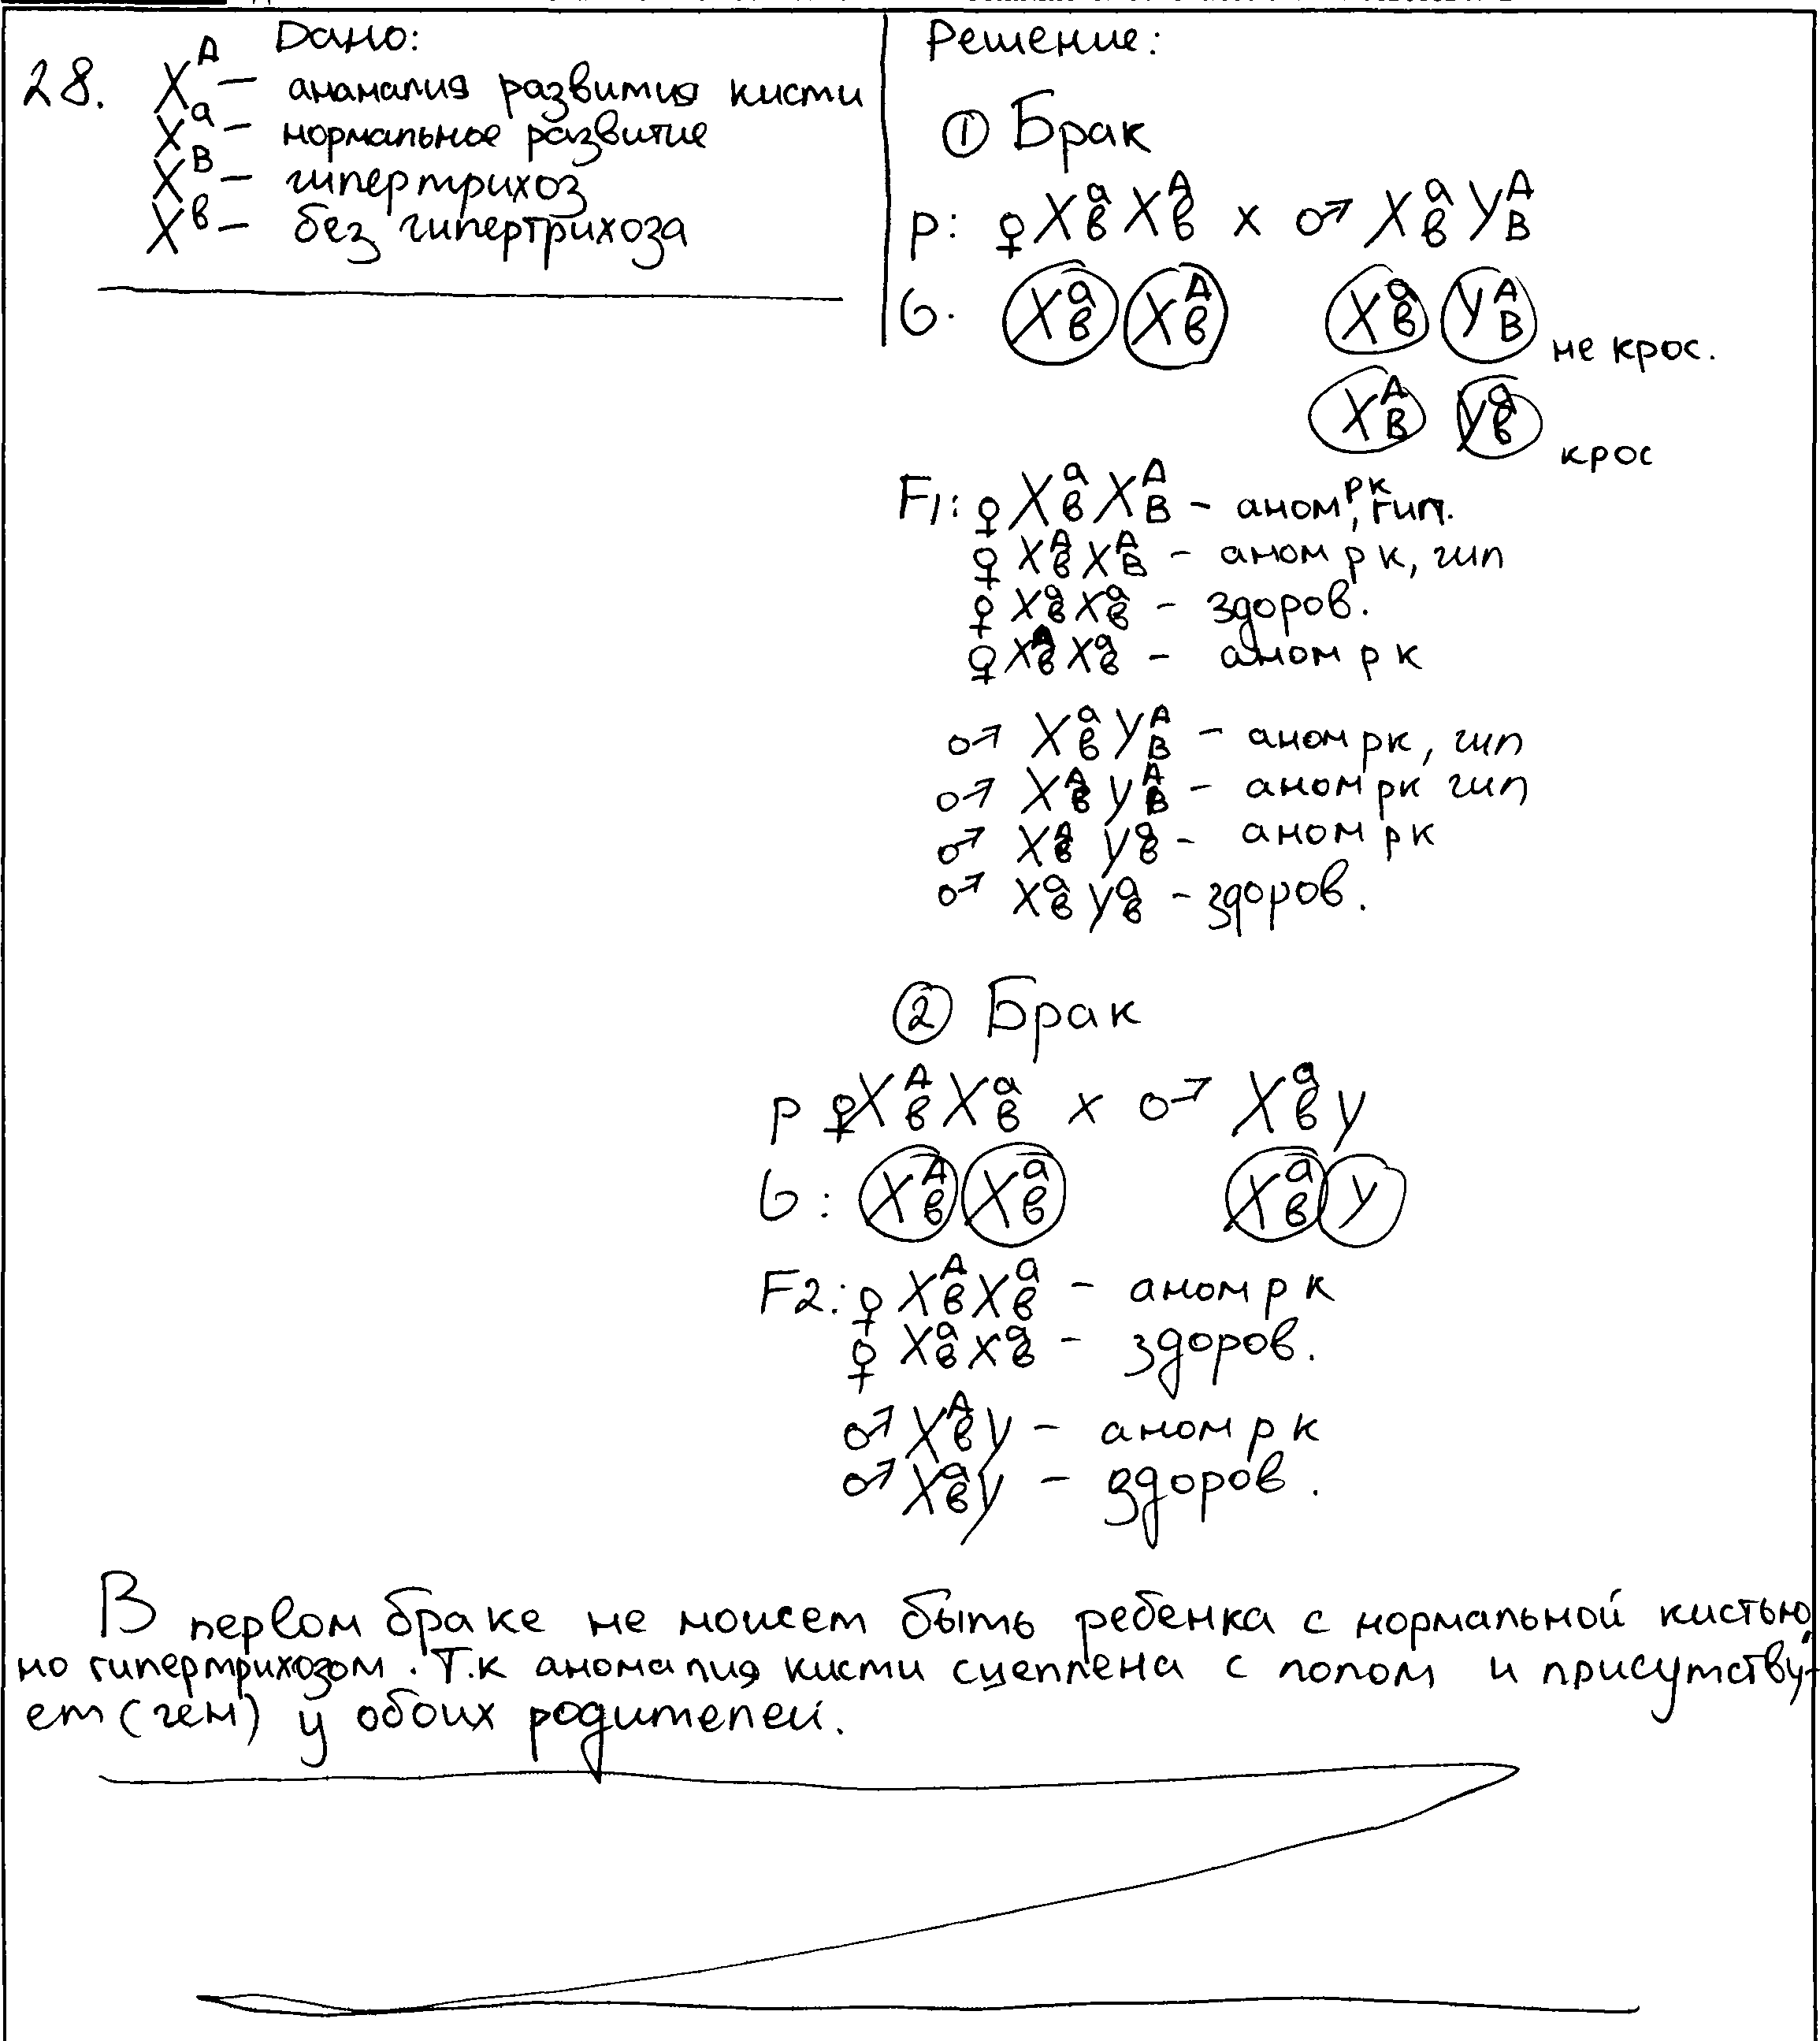 28. Дано:
X^A – анамалия развития кисти
X^a – нормальное развитие
X^B – гипертрихоз
X^в – без гипертрихоза
Решение:
① Брак
P: ♀ X^a_в X^A_в x ♂ X^a_в Y^A_B
G. X^a_в X^A_в X^a_в Y^A_B не крос.
X^A_B Y^a_в крос
F1: ♀ X^a_в X^A_B – аном рк, гип.
♀ X^A_в X^A_B – аном рк, гип
♀ X^a_в X^a_в – здоров.
♀ X^A_в X^a_в – аном рк
♂ X^a_в Y^A_B – аном рк, гип
♂ X^A_в Y^A_B – аном рк гип
♂ X^A_в Y^a_в – аном рк
♂ X^a_в Y^a_в – здоров.
② Брак
P ♀ X^A_в X^a_в x ♂ X^a_в Y
G: X^A_в X^a_в X^a_в Y
F2: ♀ X^A_в X^a_в – аном рк
♀ X^a_в X^a_в – здоров.
♂ X^A_в Y – аном рк
♂ X^a_в Y – здоров.
В первом браке не может быть ребенка с нормальной кистью
но гипертрихозом. Т.к аномалия кисти сцеплена с полом и присутству-
ет (ген) у обоих родителей.